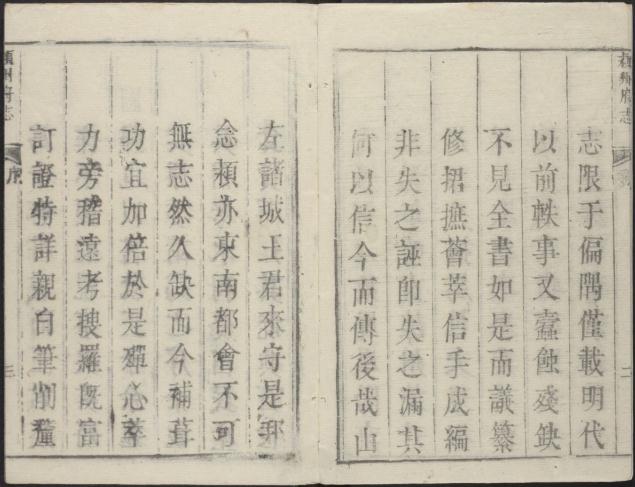 潁州府志
二
志限于偏隅僅載明代
以前軼事又蠹蝕殘缺
不見全書如是而議纂
修捃摭薈萃信手成編
非失之誣即失之漏其
何以信今而傳後哉山
左諸城王君來守是邦
念潁亦東南都會不可
無志然久缺而今補葺
功宜加倍於是殫心萃
力旁稽遠考搜羅既富
訂證特詳親自筆削釐
潁州府志
序
三